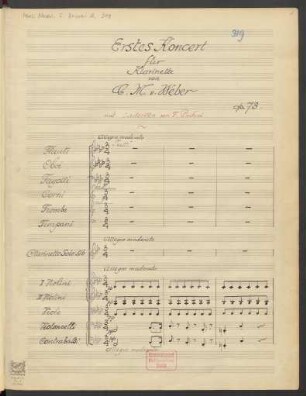 309
Erstes Konzert
für
Klarinette
von
C. M. v. Weber
op. 73.
Allegro moderato
Flauti
Oboi
Fagotti
Corni
Trombe
Timpani
Allegro moderato
Clarinetto Solo
Allegro moderato
I Violini
II Violini
Viola
Violoncelli
Contrabassi
Allegro moderato